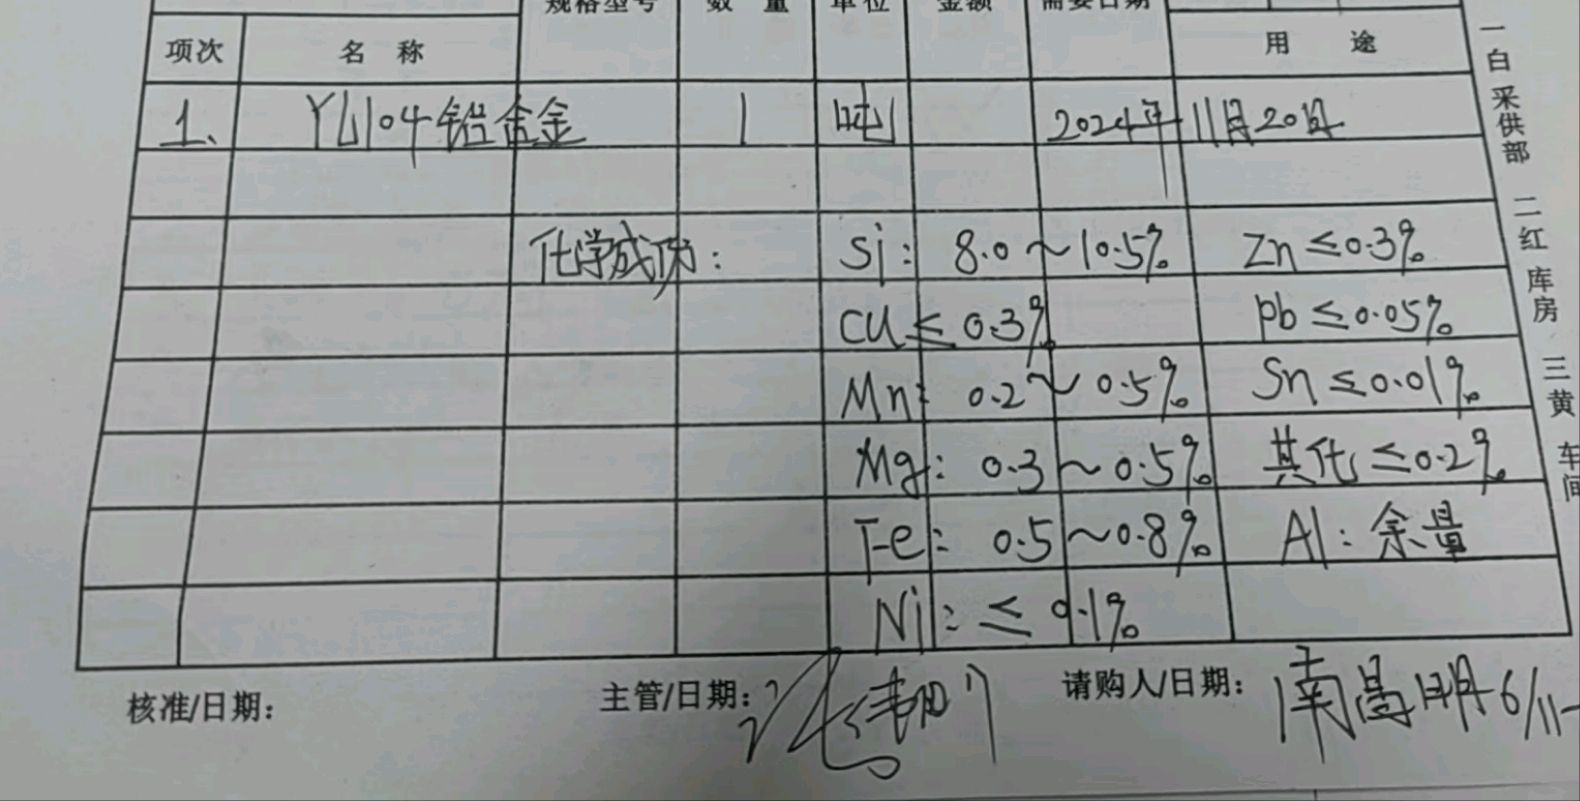 规格型号 数量 单位 金额 需要日期
项次 名称 用途
1、 YL104铝合金 1 吨 2024年11月20日
化学成份： Si： 8.0～10.5% Zn≤0.3%
Cu≤0.3% Pb≤0.05%
Mn： 0.2～0.5% Sn≤0.01%
Mg： 0.3～0.5% 其他≤0.2%
Fe： 0.5～0.8% Al：余量
Ni：≤0.1%
核准/日期： 主管/日期： 请购人/日期： 6/11
一白采供部 二红库房 三黄车间